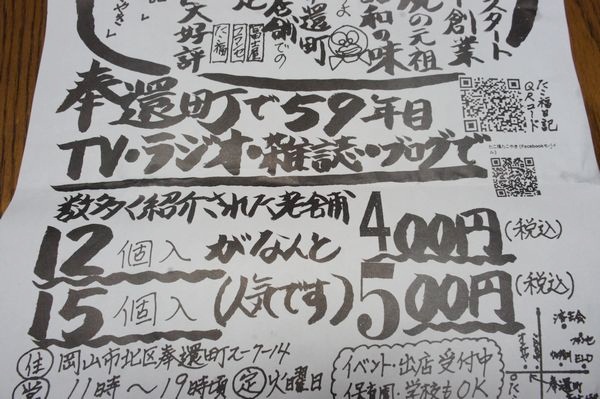 スタート
創業
の元祖
和の味
還町
店舗での
たこ福
大好評
やき」
たこ福日記
QRコード
奉還町で59年目
TV・ラジオ・雑誌・ブログで
数多く紹介された老舗
12個入がなんと400円(税込)
15個入(人気です)500円(税込)
住 岡山市北区奉還町2-7-14
11時〜19時頃 定 火曜日
イベント・出店受付中
保育園・学校もOK
奉還町